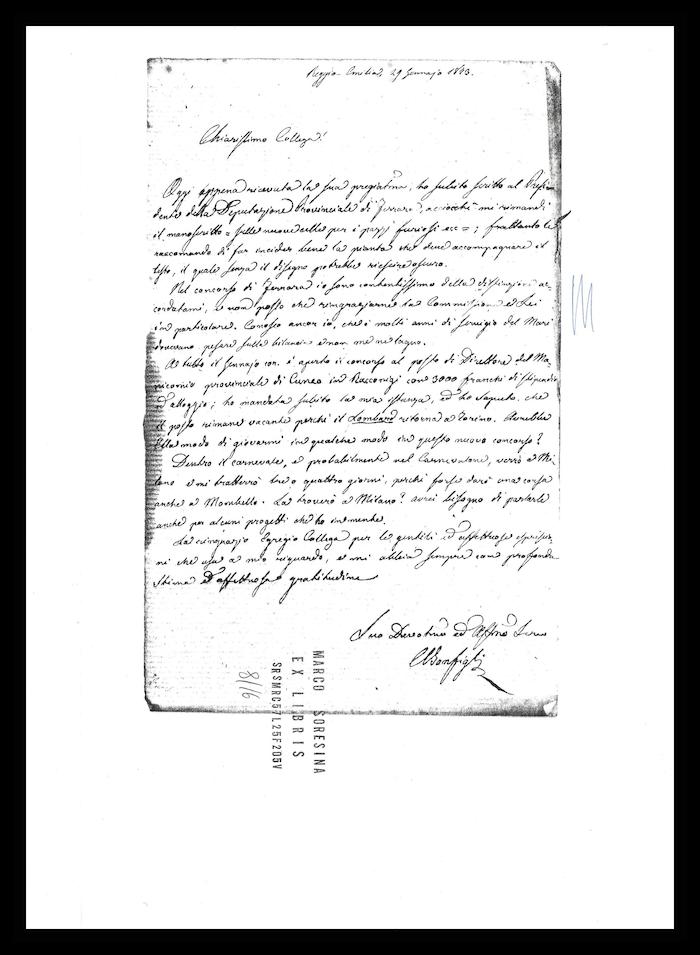 Reggio Emilia, 29 Gennajo
Chiarissimo Collega!
Oggi appena ricevuta la sua pregiatma, ho subito scritto al Presi-
dente della Deputazione Provinciale di Ferrara, acciocchè mi rimandi
il manoscritto = sulle nuove celle per i pazzi furiosi ecc =; frattanto le
raccomando di far incider bene la pianta che deve accompagnare il
testo, il quale senza il disegno potrebbe riescire oscuro.
Nel concorso di Ferrara io sono contentissimo della distinzione ac-
cordatami, e non posso che ringraziarne la Commissione ed Lei
in particolare. Conosco ancor io, che i molti anni di servigio del
dovevano pesare sulla bilancia e non me ne lagno.
A tutto il Gennajo cor. è aperto il concorso al posto di Direttore del Ma-
nicomio provinciale di Cuneo in Racconigi con 3000 franchi di stipendio
ed alloggio; ho mandata subito la mia istanza, ed ho saputo, che
il posto rimane vacante perchè il Lombard ritorna a Torino. Avrebbe
Ella modo di giovarmi in qualche modo in questo nuovo concorso?
Dentro il carnevale, e probabilmente nel Carnevalone, verrò a Mi-
lano e mi tratterrò tre o quattro giorni, perchè forse darò una corsa
anche a Mombello. La troverò a Milano? avrei bisogno di parlarle
anche per alcuni progetti che ho in mente.
La ringrazio Egregio Collega per le gentili ed affettuose espressio-
ni che usa a mio riguardo, e mi abbia sempre con profonda
stima ed affettuosa gratitudine
Suo Devotmo ed Affmo
CBonfigli
MARCO SORESINA
EX LIBRIS
SRSMRC57L25F205V
8/16